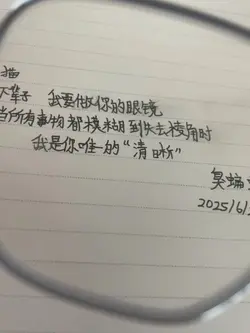 猫
下辈子 我要做你的眼镜
当所有事物都模糊到失去棱角时
我是你唯一的“清晰”
臭蝙
2025/6/